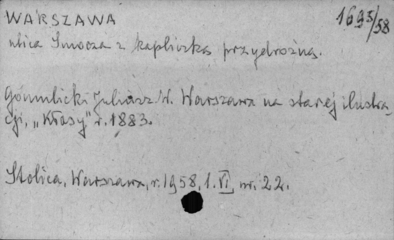 WARSZAWA 1695/58
ulica Smocza z kapliczką przydrożną.
Gomulicki Juliusz W. Warszawa na starej ilustra-
cji, „Kłosy" r. 1883.
Stolica, Warszawa, r. 1958, 1. VI, nr. 22.